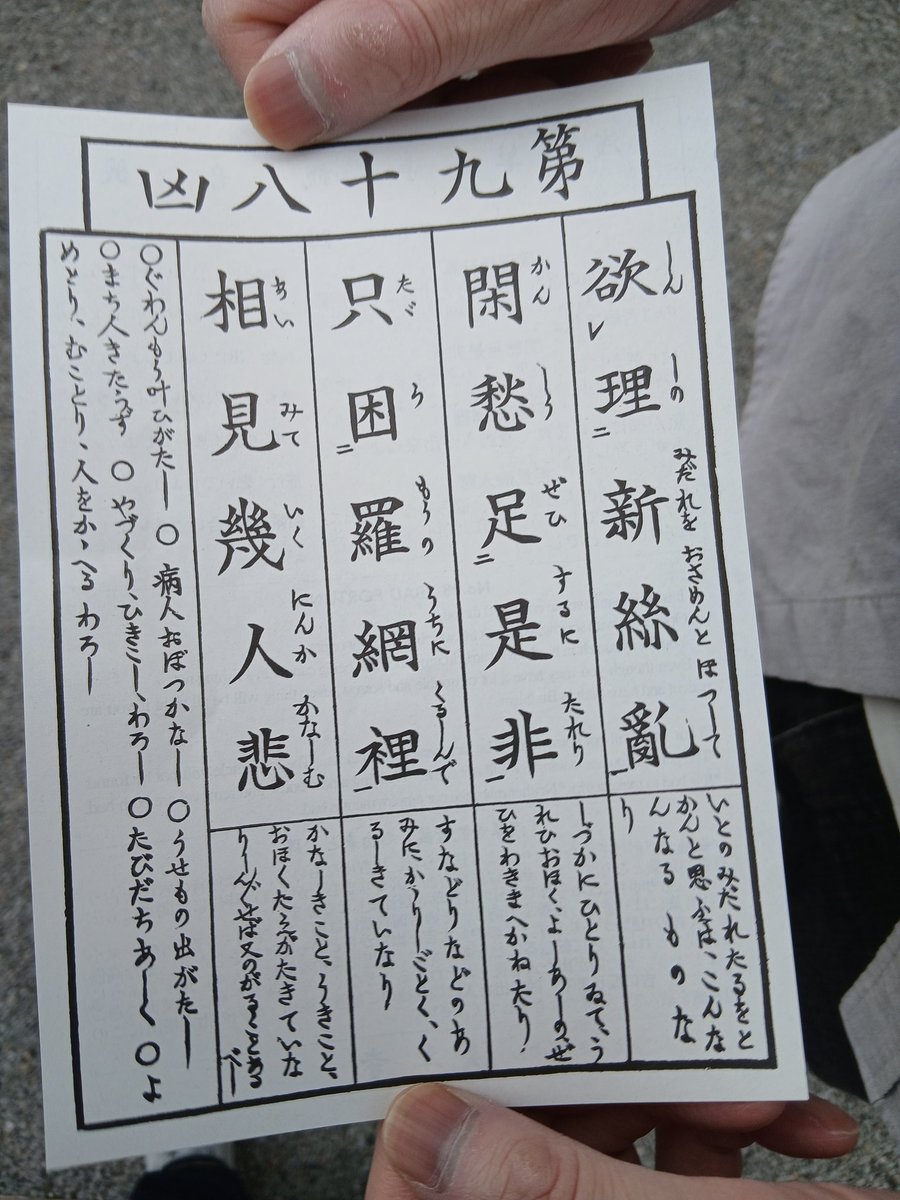 第九十八凶
欲理新絲亂
しん しの みだれを おさめんと ほつして
いとのみだれたるをと
かんと思ふは、こんな
んなるものな
り
閑愁足是非
かん しう ぜひ するに たれり
しづかにひとりゐて、う
れひおほく、よしあしのぜ
ひをわきまへかねたり
只困羅網裡
たゞ ら もうの うちに くるしんで
すなどりなどのあ
みにかゝりしごとく、く
るしきていなり
相見幾人悲
あい みて いく にんか かなしむ
かなしきこと、うきこと、
おほくたえがたきていな
り、しんぐせば又のがるゝことある
べし
○ぐわんもう叶ひがたし ○病人おぼつかなし ○うせもの出がたし
○まち人きたらず ○やづくり、ひきこし、わろし ○たびだちあしく ○よ
めとり、むことり、人をかゝへるわろし